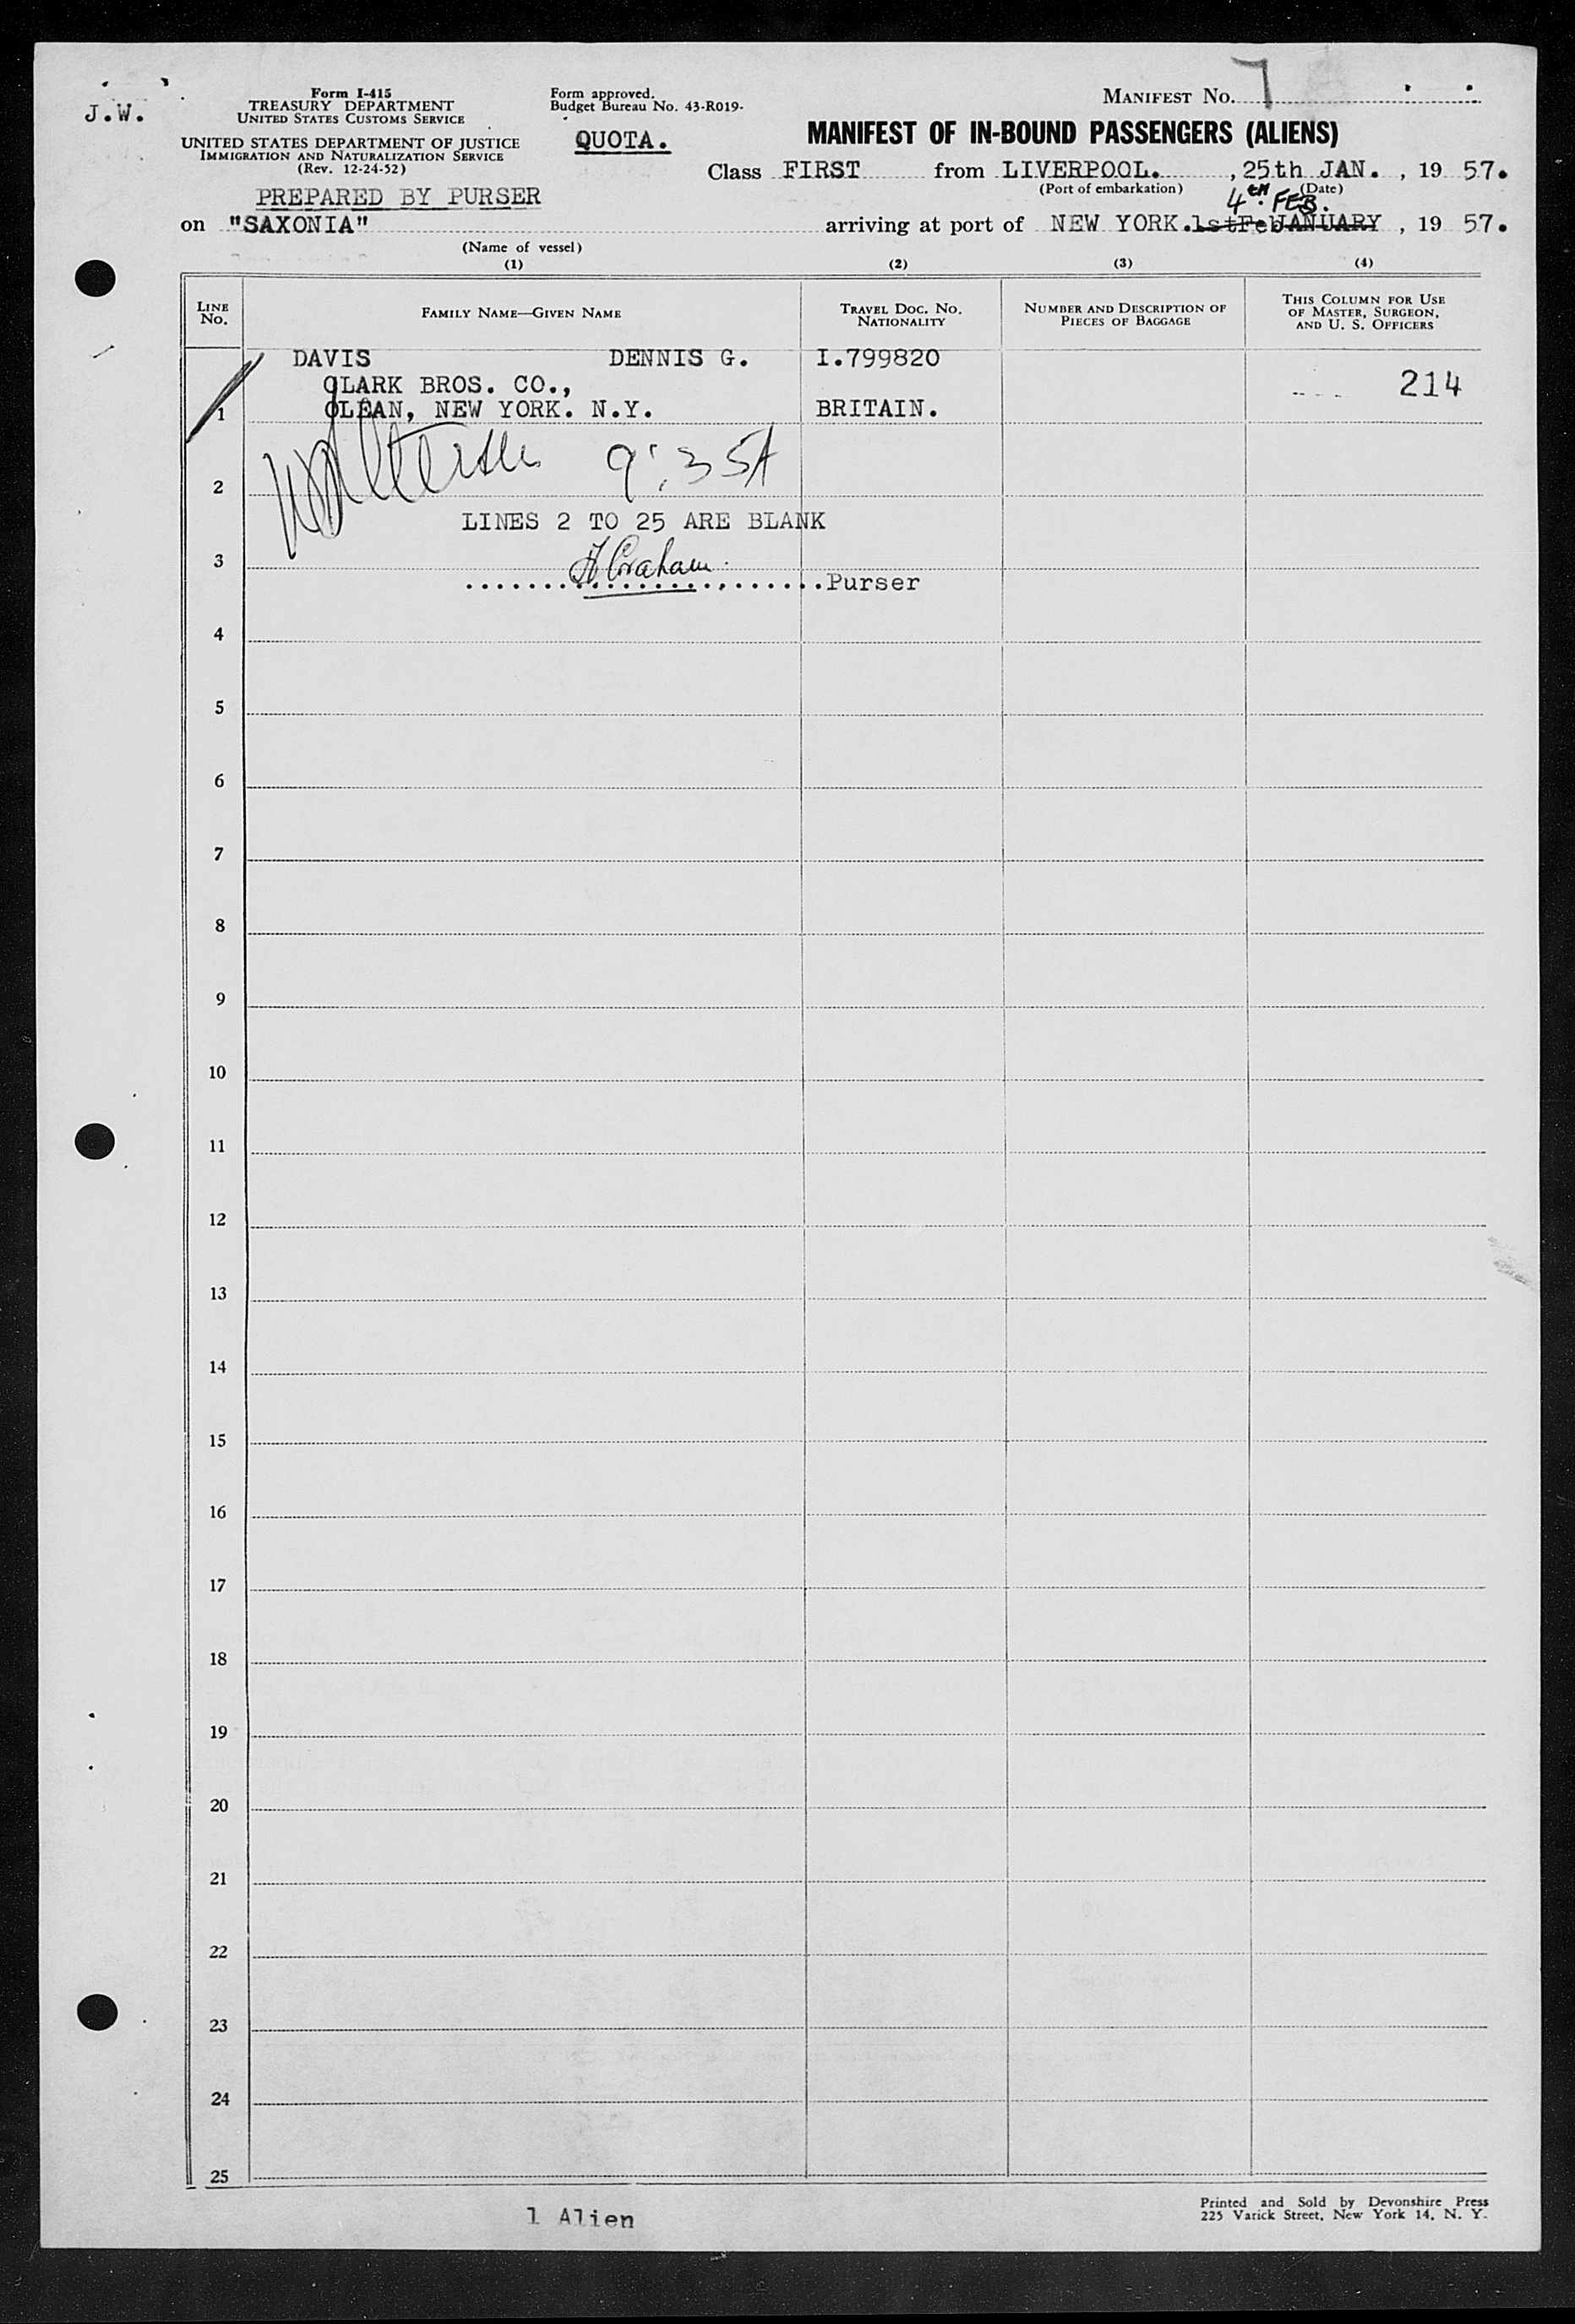 J.W.
Form I-415
TREASURY DEPARTMENT
UNITED STATES CUSTOMS SERVICE
UNITED STATES DEPARTMENT OF JUSTICE
IMMIGRATION AND NATURALIZATION SERVICE
(Rev. 12-24-52)
PREPARED BY PURSER
Form approved.
Budget Bureau No. 43-R019-
QUOTA.
MANIFEST NO. 7
MANIFEST OF IN-BOUND PASSENGERS (ALIENS)
Class FIRST from LIVERPOOL. , 25th JAN. , 19 57.
(Port of embarkation) (Date)
4TH. FEB.
on "SAXONIA" arriving at port of NEW YORK. 1stFebJANUARY , 19 57.
(Name of vessel)
(1) (2) (3) (4)
LINE NO. FAMILY NAME—GIVEN NAME TRAVEL DOC. NO. NATIONALITY NUMBER AND DESCRIPTION OF PIECES OF BAGGAGE THIS COLUMN FOR USE OF MASTER, SURGEON, AND U. S. OFFICERS
DAVIS DENNIS G. I.799820
CLARK BROS. CO., 214
1 OLEAN, NEW YORK. N.Y. BRITAIN.
9:35A
2
LINES 2 TO 25 ARE BLANK
3
Graham
Purser
4
5
6
7
8
9
10
11
12
13
14
15
16
17
18
19
20
21
22
23
24
25
1 Alien
Printed and Sold by Devonshire Press
225 Varick Street, New York 14, N. Y.